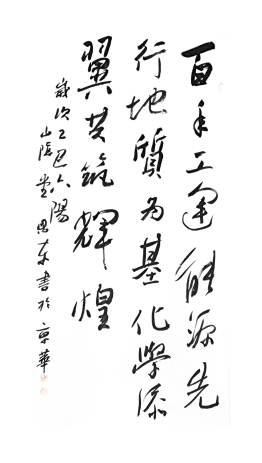 百年工運能源先
行地質為基化學添
翼共筑輝煌
歲次乙巳六陽
山陰書於京華